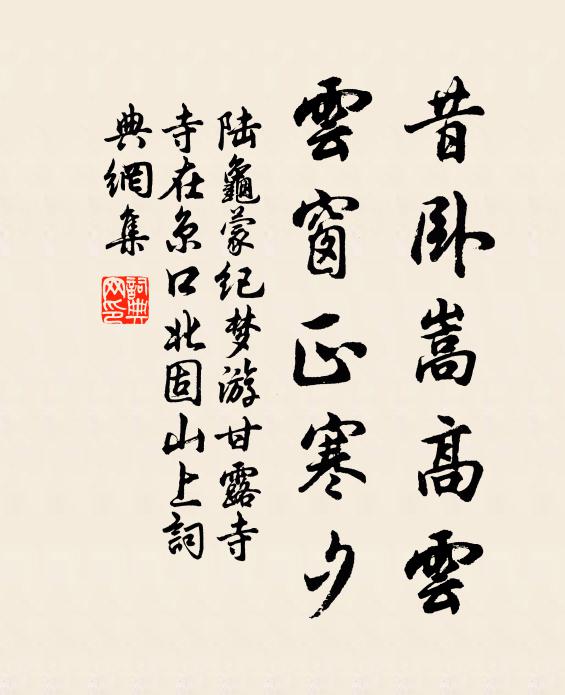 昔卧嵩高雲
雲窗正寒夕
陆龜蒙纪梦游甘露寺
寺在京口北固山上詞
典網集
詞典网印